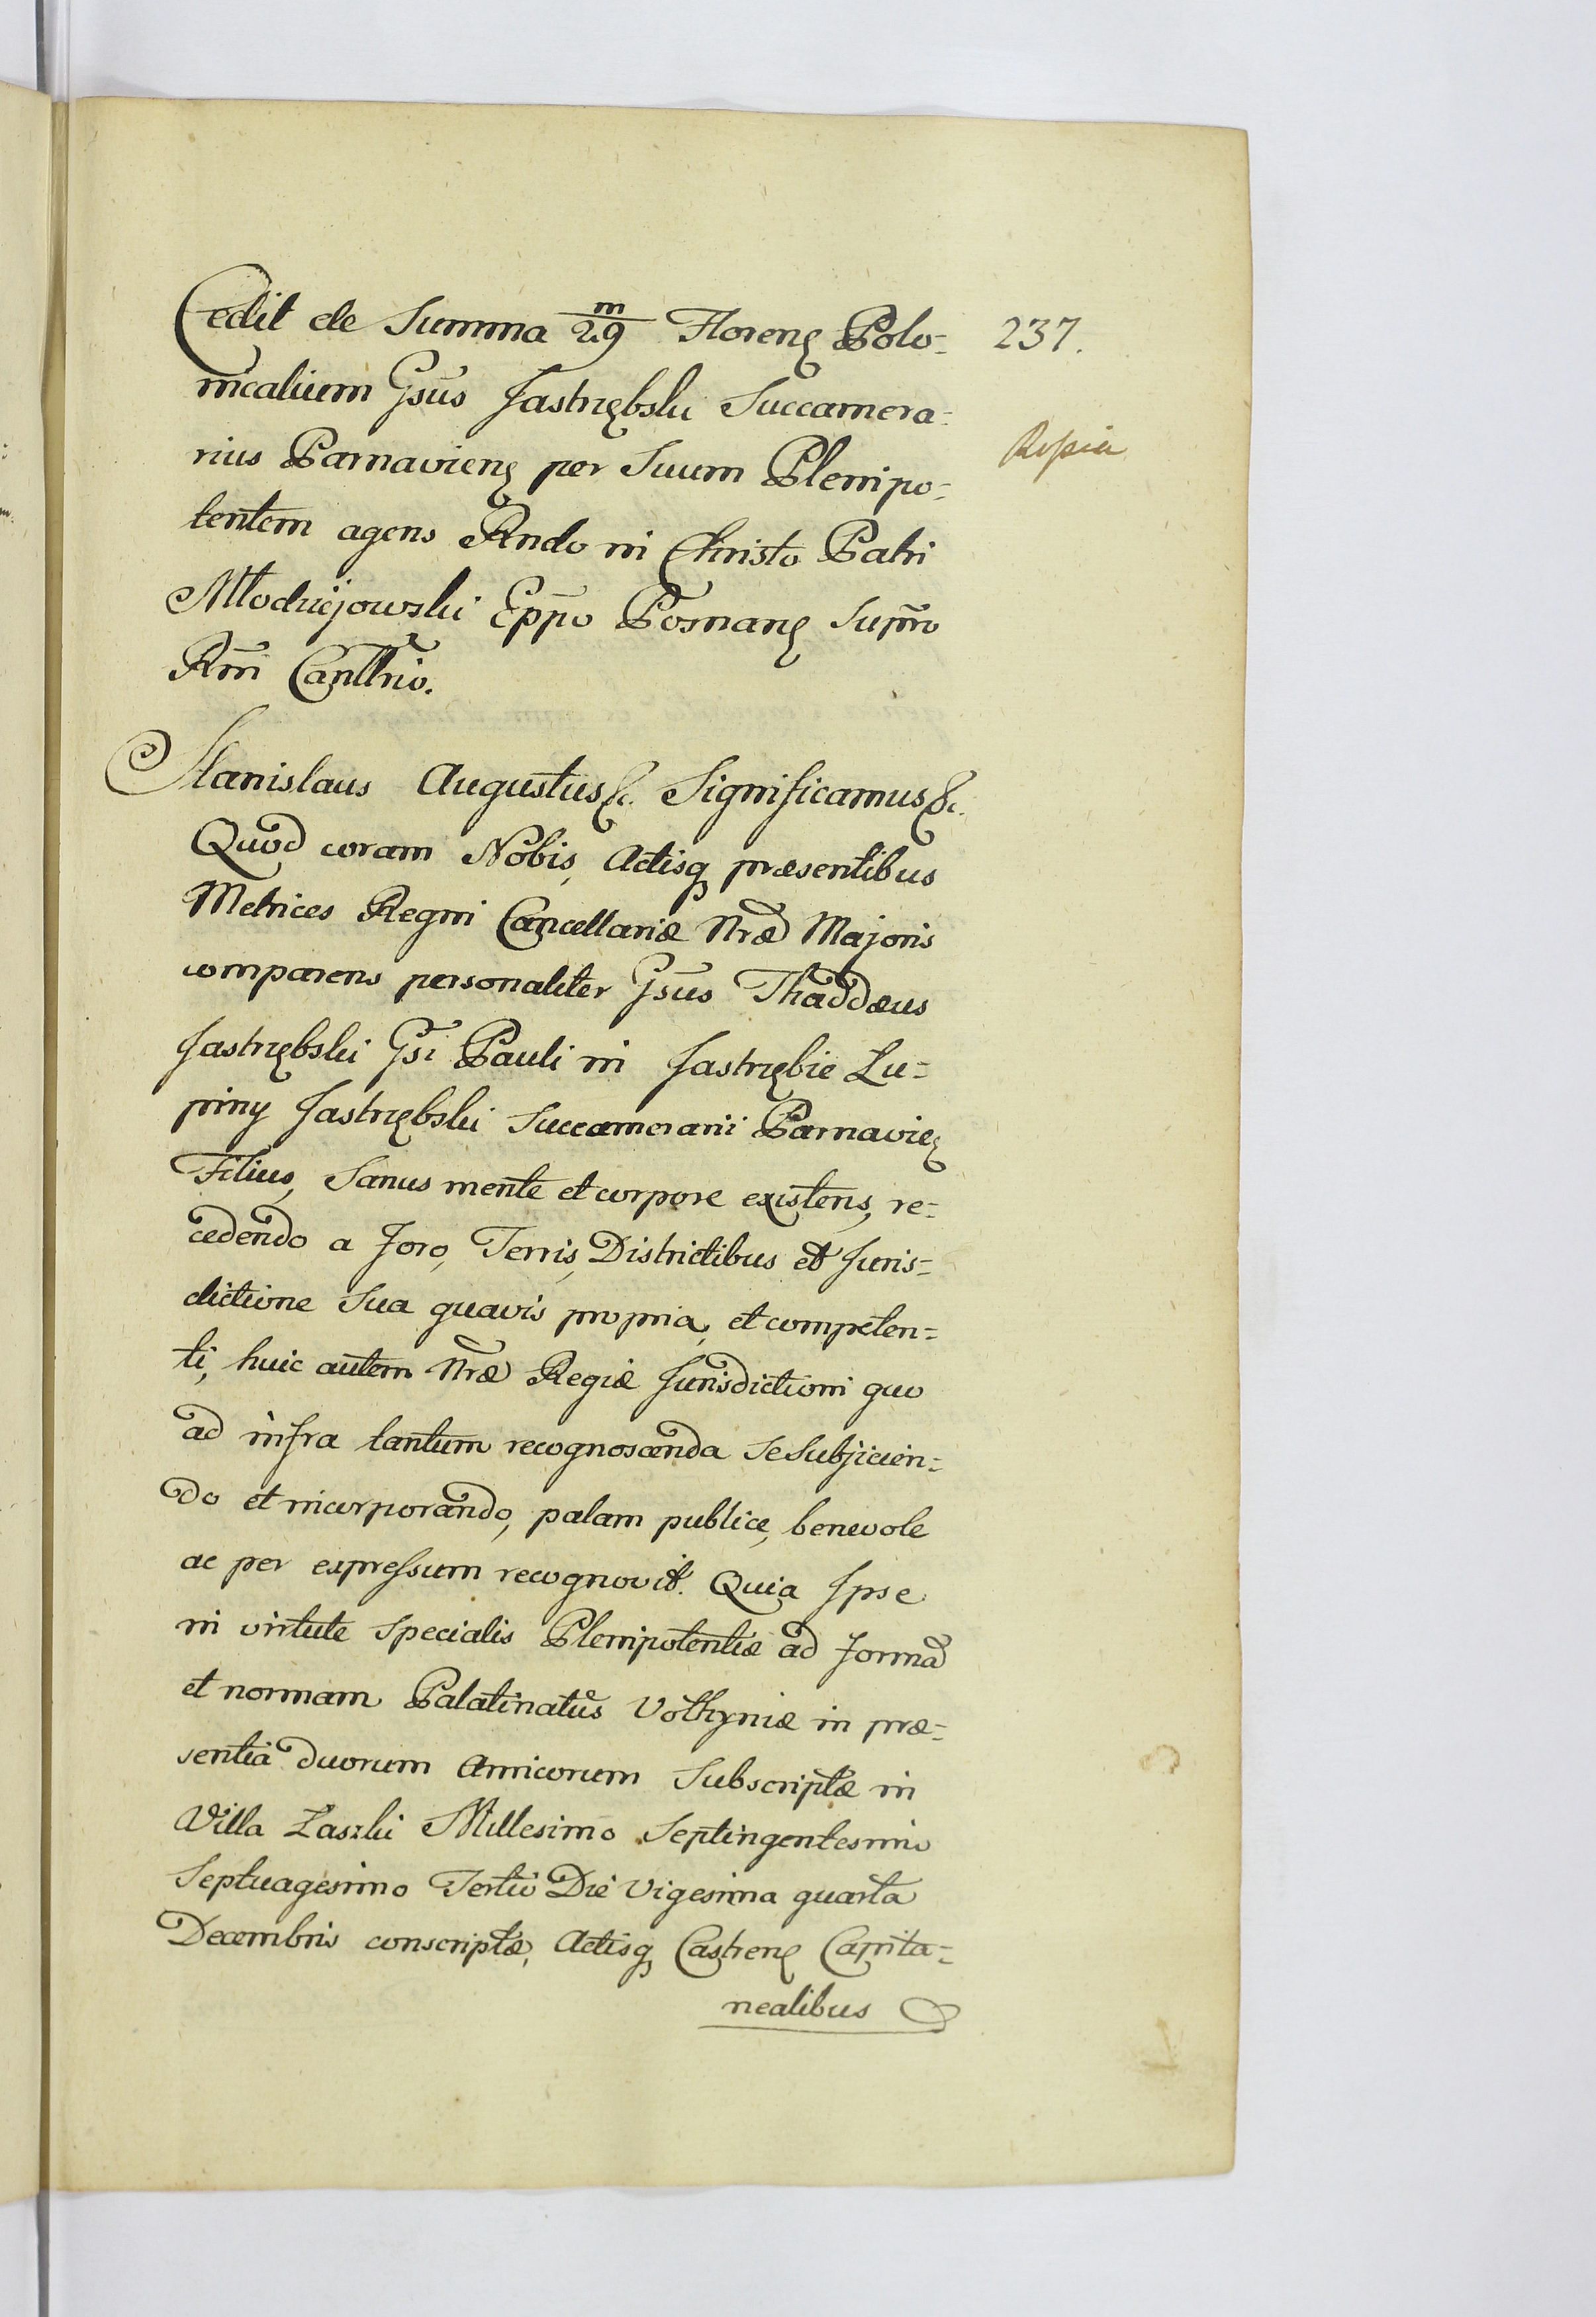 Cedit de Summa 29 m Florenę Polo=
237.
nicalium Gsus Jastrzębski Succamera=
rius Parnavienę per Suum Plenipo=
tentem agens Rndo in Christo Patri
Młodziejowski Eppo Posnanę Supmo
Rni Canllrio.
Stanislaus Augustus &c. Significamus &c.
Quod coram Nobis, Actisq præsentibus
Metrices Regni Cancellariæ Nræ Majoris
comparens personaliter Gsus Thaddæus
Jastrzębski Gsi Pauli in Jastrzębie Lu=
piny Jastrzębski Succamerarii Parnavieę
Filius, Sanus mente et corpore existens, re=
cedendo a Foro, Terris, Districtibus et Juris=
dictione Sua quavis propria, et competen=
ti, huic autem Nræ Regiæ Jurisdictioni quo
ad infra tantum recognoscenda Se Subjicien=
do et incorporando, palam publice, benevole
ac per expressum recognovit. Quia Ipse
in virtute Specialis Plenipotentiæ ad formã
et normam Palatinatûs Volhyniæ in præ=
sentiâ duorum Amicorum Subscriptæ in
Villa Laszki Millesimo Septingentesimo
Septuagesimo Tertio Die Vigesima quarta
Decembris conscriptæ, Actisq Castrenę Capita=
nealibus